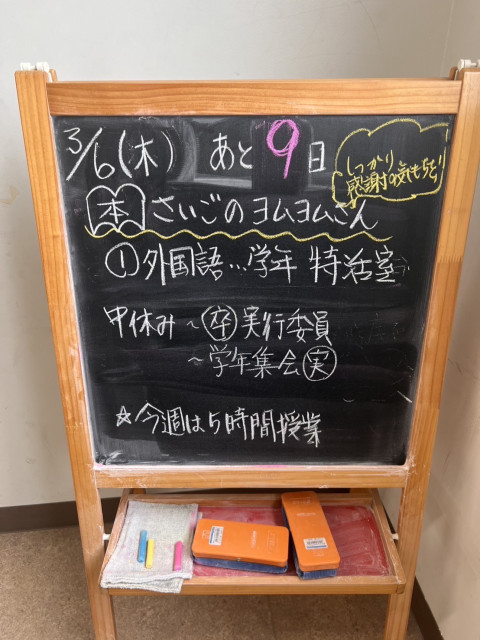 3/6(木) あと9日
しっかり
感謝の気もちを!
本 さいごのヨムヨムさん
①外国語…学年 特活室
中休み～卒実行委員
～学年集会実
☆今週は5時間授業